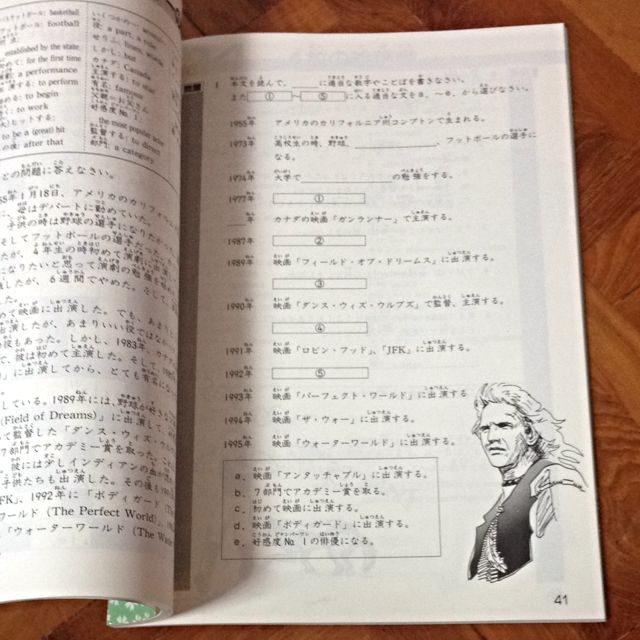 バスケットボール: basketball
フットボール: football
established by the state
for the first time
a performance
to perform
to begin
to work
ヒットする:
to be a (great) hit
その後: after that
いくつかの
役: a part, a role
しかし: but
カナダ: Canada
主演する: to star
有名: famous
好感度No.1:
the most popular actor
監督する: to direct
部門: a category
の問題に答えなさい。
1月18日、アメリカのカリフォルニ
母はデパートに勤めていた。
子供の時は野球の選手になりたかっ
そしてフットボールの選手だった。
4年生の時初めて演劇
になりたいと思って演劇の勉強を始め
したが、6週間でやめた。そして、
めて映画に出演した。でも、あま
出演したが、あまりいい役ではなかっ
役もあった。しかし、1983年、カナダ
で、彼は初めて主演した。そして、
に出演してから、とても有名にな
している。1989年には、野球が好きな
(Field of Dreams)」に出演して、
めて監督した「ダンス・ウィズ・ウ
7部門でアカデミー賞を取った。
彼には少しインディアンの血が
子供たちも出演した。その後も
JFK」、1992年に「ボディガード (The
ワールド (The Perfect World)」、
「ウォーターワールド (The Wate
1 本文を読んで、______に適当な数字やことばを書きなさい。
また ① ～ ⑤ に入る適当な文をa.～e.から選びなさい。
1955年 アメリカのカリフォルニア州コンプトンで生まれる。
1973年 高校生の時、野球、______、フットボールの選手に
なる。
1974年 大学で______の勉強をする。
1977年 ①
____年 カナダの映画「ガンランナー」で主演する。
1987年 ②
1989年 映画「フィールド・オブ・ドリームス」に出演する。
③
1990年 映画「ダンス・ウィズ・ウルブズ」で監督、主演する。
④
1991年 映画「ロビン・フッド」、「JFK」に出演する。
1992年 ⑤
1993年 映画「パーフェクト・ワールド」に出演する
1994年 映画「ザ・ウォー」に出演する。
1995年 映画「ウォーターワールド」に出演する。
a. 映画「アンタッチャブル」に出演する。
b. 7部門でアカデミー賞を取る。
c. 初めて映画に出演する。
d. 映画「ボディガード」に出演する。
e. 好感度No.1の俳優になる。
41